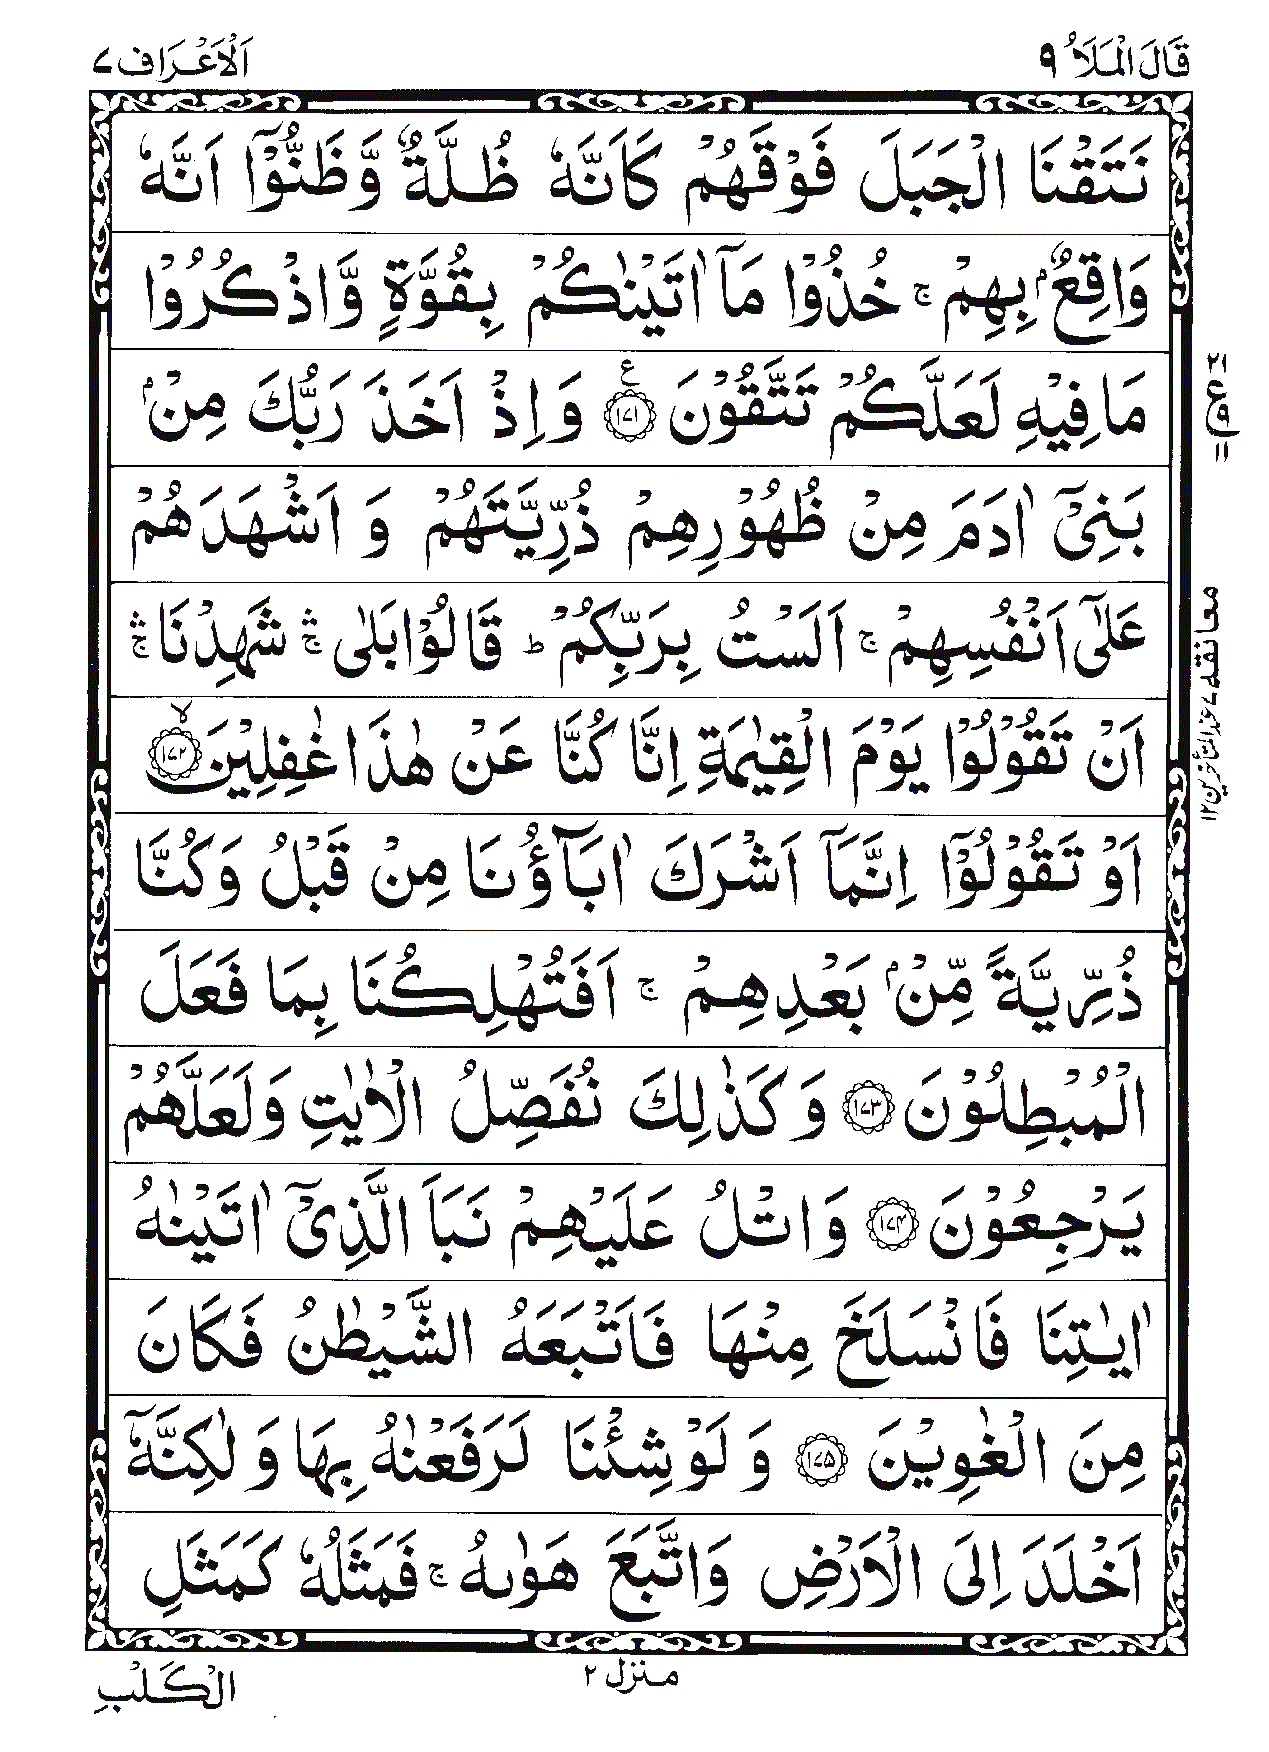 قَالَ الْمَلَاُ ۹
اَلْاَعْرَاف ۷
نَتَقْنَا الْجَبَلَ فَوْقَهُمْ كَاَنَّهٗ ظُلَّةٌ وَّظَنُّوْۤا اَنَّهٗ
وَاقِعٌۢ بِهِمْ ۚ خُذُوْا مَاۤ اٰتَيْنٰكُمْ بِقُوَّةٍ وَّاذْكُرُوْا
مَا فِيْهِ لَعَلَّكُمْ تَتَّقُوْنَ ﴿۱۷۱﴾ ع وَاِذْ اَخَذَ رَبُّكَ مِنْۢ
بَنِيْۤ اٰدَمَ مِنْ ظُهُوْرِهِمْ ذُرِّيَّتَهُمْ وَ اَشْهَدَهُمْ
عَلٰۤى اَنْفُسِهِمْ ۚ اَلَسْتُ بِرَبِّكُمْ ؕ قَالُوْا بَلٰى ۛۚ شَهِدْنَا ۛۚ
اَنْ تَقُوْلُوْا يَوْمَ الْقِيٰمَةِ اِنَّا كُنَّا عَنْ هٰذَا غٰفِلِيْنَ ﴿۱۷۲﴾ ۙ
اَوْ تَقُوْلُوْۤا اِنَّمَاۤ اَشْرَكَ اٰبَآؤُنَا مِنْ قَبْلُ وَكُنَّا
ذُرِّيَّةً مِّنْۢ بَعْدِهِمْ ۚ اَفَتُهْلِكُنَا بِمَا فَعَلَ
الْمُبْطِلُوْنَ ﴿۱۷۳﴾ وَكَذٰلِكَ نُفَصِّلُ الْاٰيٰتِ وَلَعَلَّهُمْ
يَرْجِعُوْنَ ﴿۱۷۴﴾ وَاتْلُ عَلَيْهِمْ نَبَاَ الَّذِيْۤ اٰتَيْنٰهُ
اٰيٰتِنَا فَانْسَلَخَ مِنْهَا فَاَتْبَعَهُ الشَّيْطٰنُ فَكَانَ
مِنَ الْغٰوِيْنَ ﴿۱۷۵﴾ وَلَوْ شِئْنَا لَرَفَعْنٰهُ بِهَا وَلٰكِنَّهٗۤ
اَخْلَدَ اِلَى الْاَرْضِ وَاتَّبَعَ هَوٰىهُ ۚ فَمَثَلُهٗ كَمَثَلِ
۲۱
ع
۹
۱۱
معانقة ۷ عند المتأخرين ۱۲
منزل ۲
الْكَلْبِ